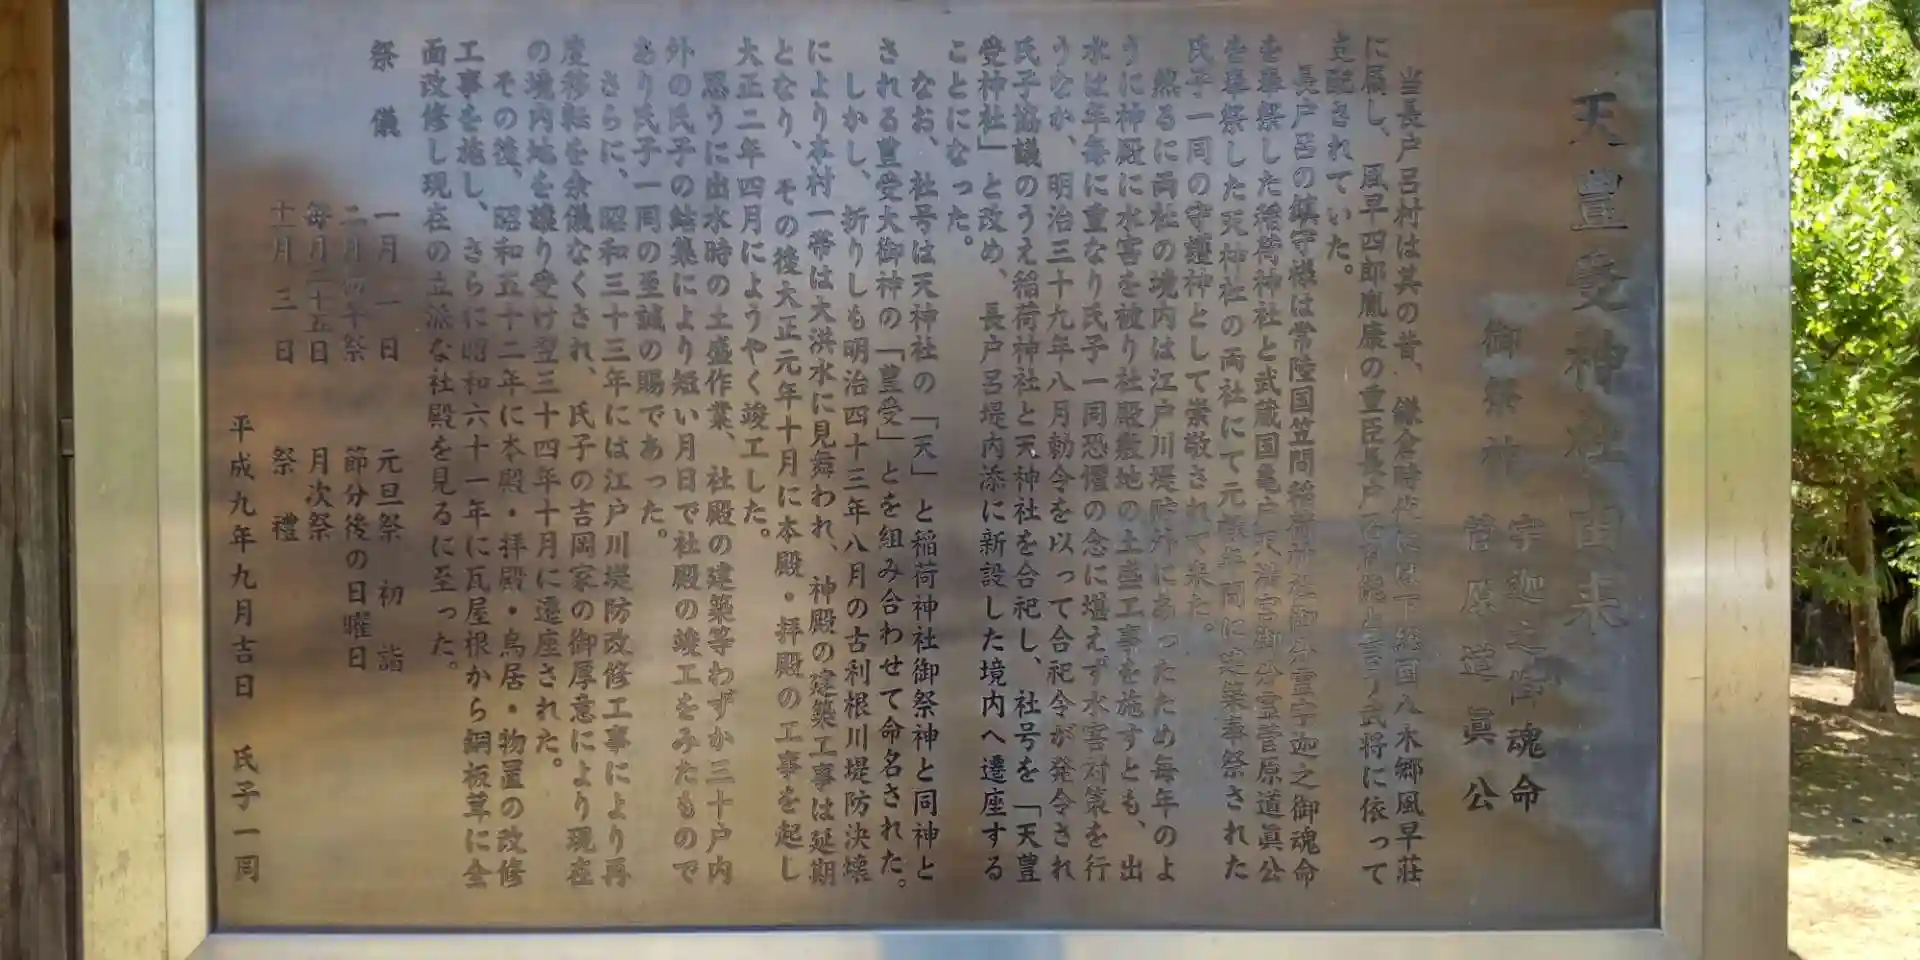 天豊受神社由来
御祭神
宇迦之御魂命
菅原道眞公
当長戸呂村は其の昔、鎌倉時代には下総国八木郷風早荘
に属し、風早四郎胤康の重臣長戸呂
と言う武将に依って
支配されていた。
長戸呂の鎮守様は常陸国笠間稲荷神社御分霊宇迦之御魂命
を奉祭した稲荷神社と武蔵国亀戸天神宮御分霊菅原道眞公
を奉祭した天神社の両社にて元禄年間に建築奉祭された
氏子一同の守護神として崇敬されて来た。
然るに両社の境内は江戸川堤防外にあったため毎年のよ
うに神殿に水害を被り社殿敷地の土盛工事を施すとも、出
水は年毎に重なり氏子一同恐懼の念に堪えず水害対策を行
うなか、明治三十九年八月勅令を以って合祀令が発令され
氏子協議のうえ稲荷神社と天神社を合祀し、社号を「天豊
受神社」と改め、長戸呂堤内添に新設した境内へ遷座する
ことになった。
なお、社号は天神社の「天」と稲荷神社御祭神と同神と
される豊受大御神の「豊受」とを組み合わせて命名された。
しかし、折りしも明治四十三年八月の古利根川堤防決壊
により本村一帯は大洪水に見舞われ、神殿の建築工事は延期
となり、その後大正元年十月に本殿・拝殿の工事を起し
大正二年四月にようやく竣工した。
思うに出水時の土盛作業、社殿の建築等わずか三十戸内
外の氏子の結集により短い月日で社殿の竣工をみたもので
あり氏子一同の至誠の賜であった。
さらに、昭和三十三年には江戸川堤防改修工事により再
度移転を余儀なくされ、氏子の吉岡家の御厚意により現在
の境内地を譲り受け翌三十四年十月に遷座された。
その後、昭和五十二年に本殿・拝殿・鳥居・物置の改修
工事を施し、さらに昭和六十一年に瓦屋根から銅板葺に全
面改修し現在の立派な社殿を見るに至った。
祭儀
一月一日 元旦祭 初詣
二月節分祭 節分後の日曜日
毎月二十五日 月次祭
十一月三日 祭禮
平成九年九月吉日 氏子一同